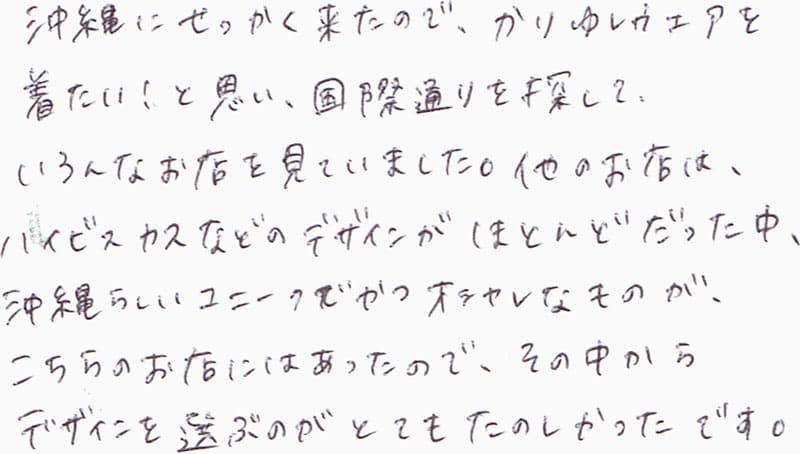 沖縄にせっかく来たので、かりゆしウエアを
着たい！と思い、国際通りを探して、
いろんなお店を見ていました。他のお店は、
ハイビスカスなどのデザインがほとんどだった中、
沖縄らしいユニークでかつオシャレなものが、
こちらのお店にはあったので、その中から
デザインを選ぶのがとてもたのしかったです。